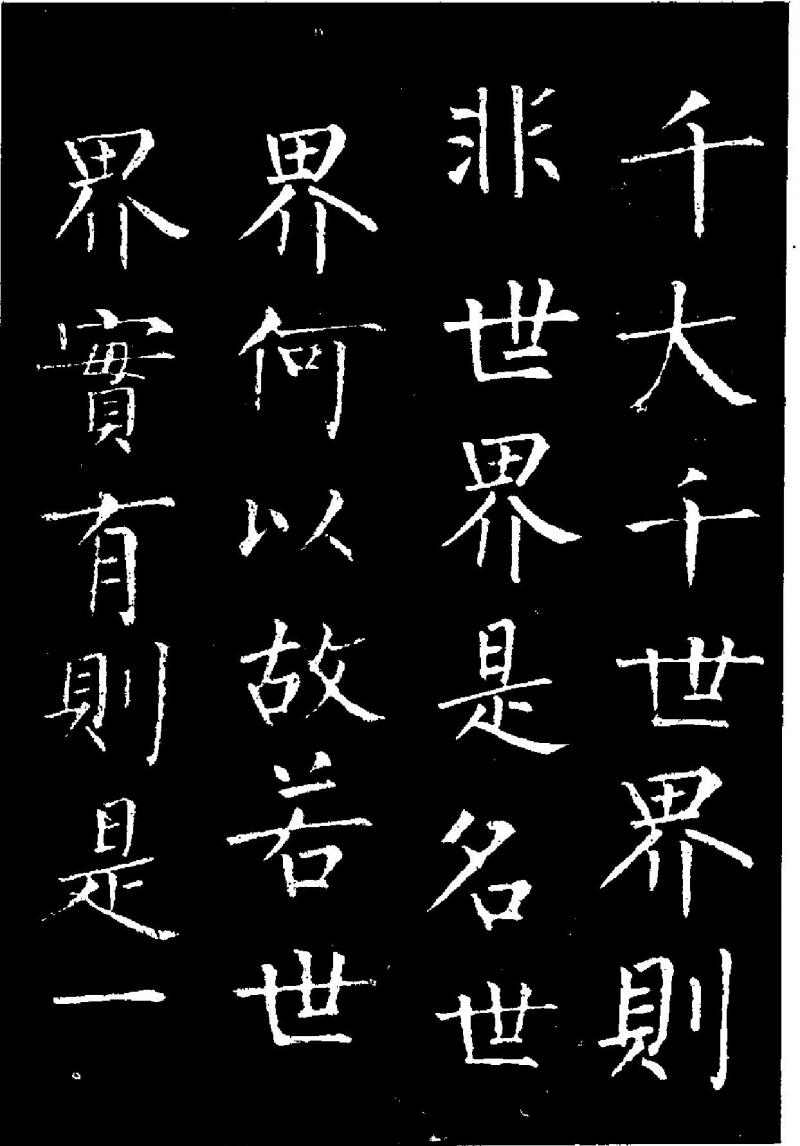 千大千世界則
非世界是名世
界何以故若世
界實有則是一